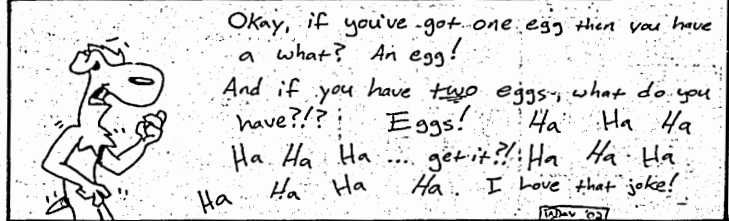 Okay, if you've got one egg then you have
a what? An egg!
And if you have two eggs, what do you
have?!? Eggs! Ha Ha Ha
Ha Ha Ha ... get it?! Ha Ha Ha
Ha Ha Ha Ha. I Love that joke!